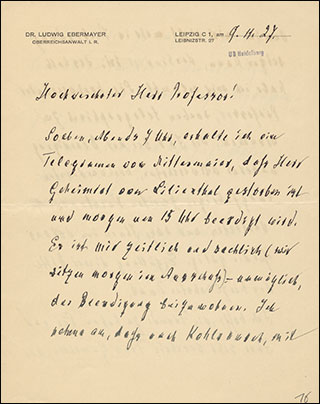 DR. LUDWIG EBERMAYER
OBERREICHSANWALT i. R.
LEIPZIG C 1, am 9. 11. 27.
LEIBNIZSTR. 27
UB Heidelberg
Hochverehrter Herr Professor!
Soeben, Abends 7 Uhr, erhalte ich ein
Telegramm von Mittermaier, daß Herr
Geheimrat von Lilienthal gestorben ist
und morgen um 15 Uhr beerdigt wird.
Es ist mir zeitlich und sachlich (wir
sitzen morgen im Ausschuß) – unmöglich,
der Beerdigung beizuwohnen. Ich
nehme an, daß auch Kohlrausch, mit